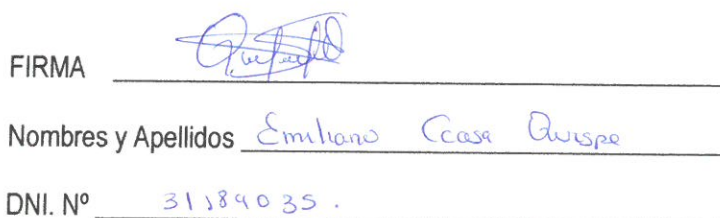 FIRMA
Nombres y Apellidos Emiliano Ccasa Quispe
DNI. Nº 31189035.